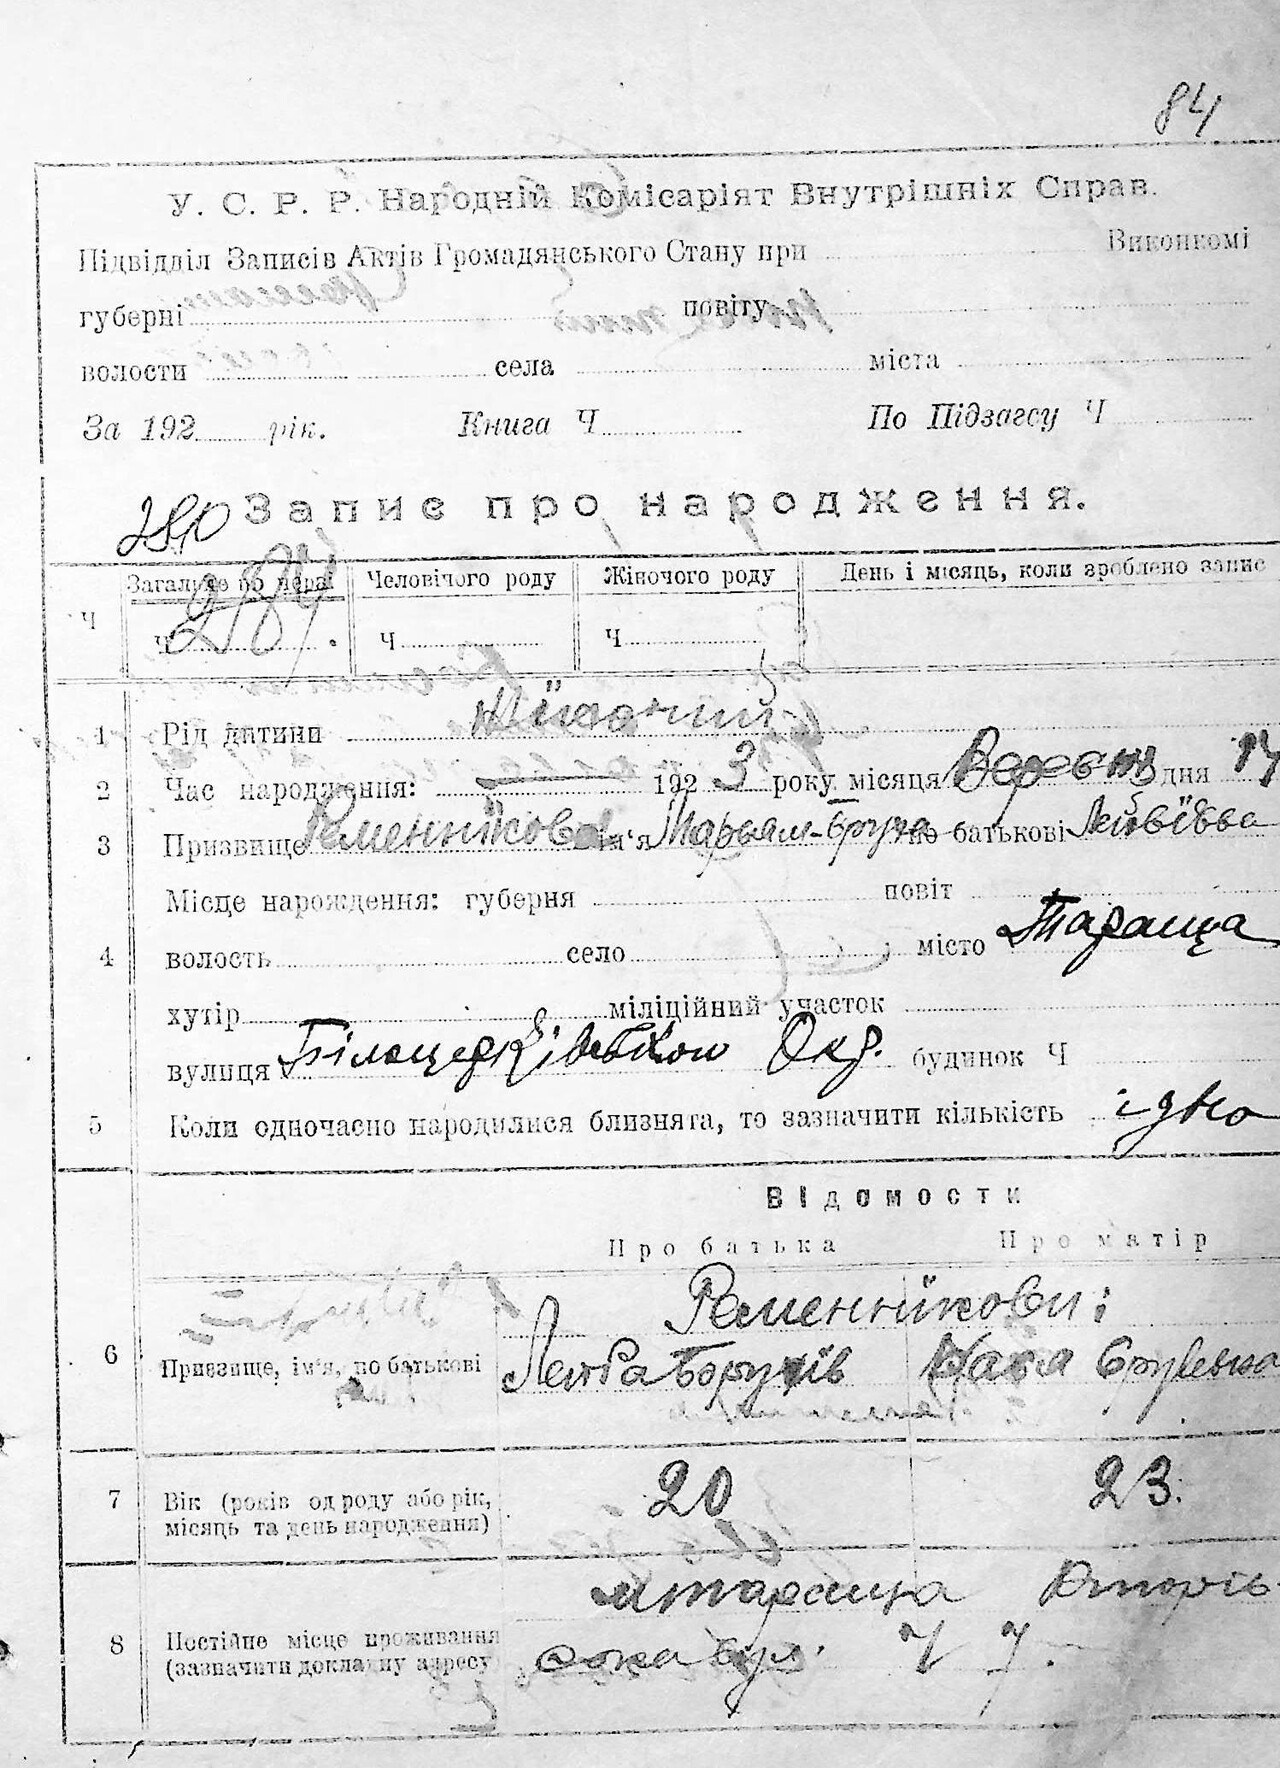 84
У. С. Р. Р. Народній Комісаріят Внутрішніх Справ.
Підвідділ Записів Актів Громадянського Стану при Виконкомі
губерні повіту
волости села міста
За 192 рік. Книга Ч По Підзагсу Ч
280 Запис про народження.
Ч Загальне по черзі Человічого роду Жіночого роду День і місяць, коли зроблено запис
Ч 284 Ч Ч
1 Рід дитини Жіночий
2 Час народження: 1923 року місяця Вересня дня 14
3 Призвище Ременнікова ім'я Марьям-Бруха по батькові Лейбівва
Місце народження: губерня повіт
4 волость село місто Тараща
хутір міліційний участок
вулиця Білоцерківської Окр. будинок Ч
5 Коли одночасно народилися близнята, то зазначити кількість їдно
Відомости
Про батька Про матір
Ременнікови:
6 Призвище, ім'я, по батькові Лейба Борухів Хая
7 Вік (років од роду або рік, місяць та день народження) 20 23.
8 Постійне місце проживання (зазначити докладну адресу м Тараща
вул. Ч 7.